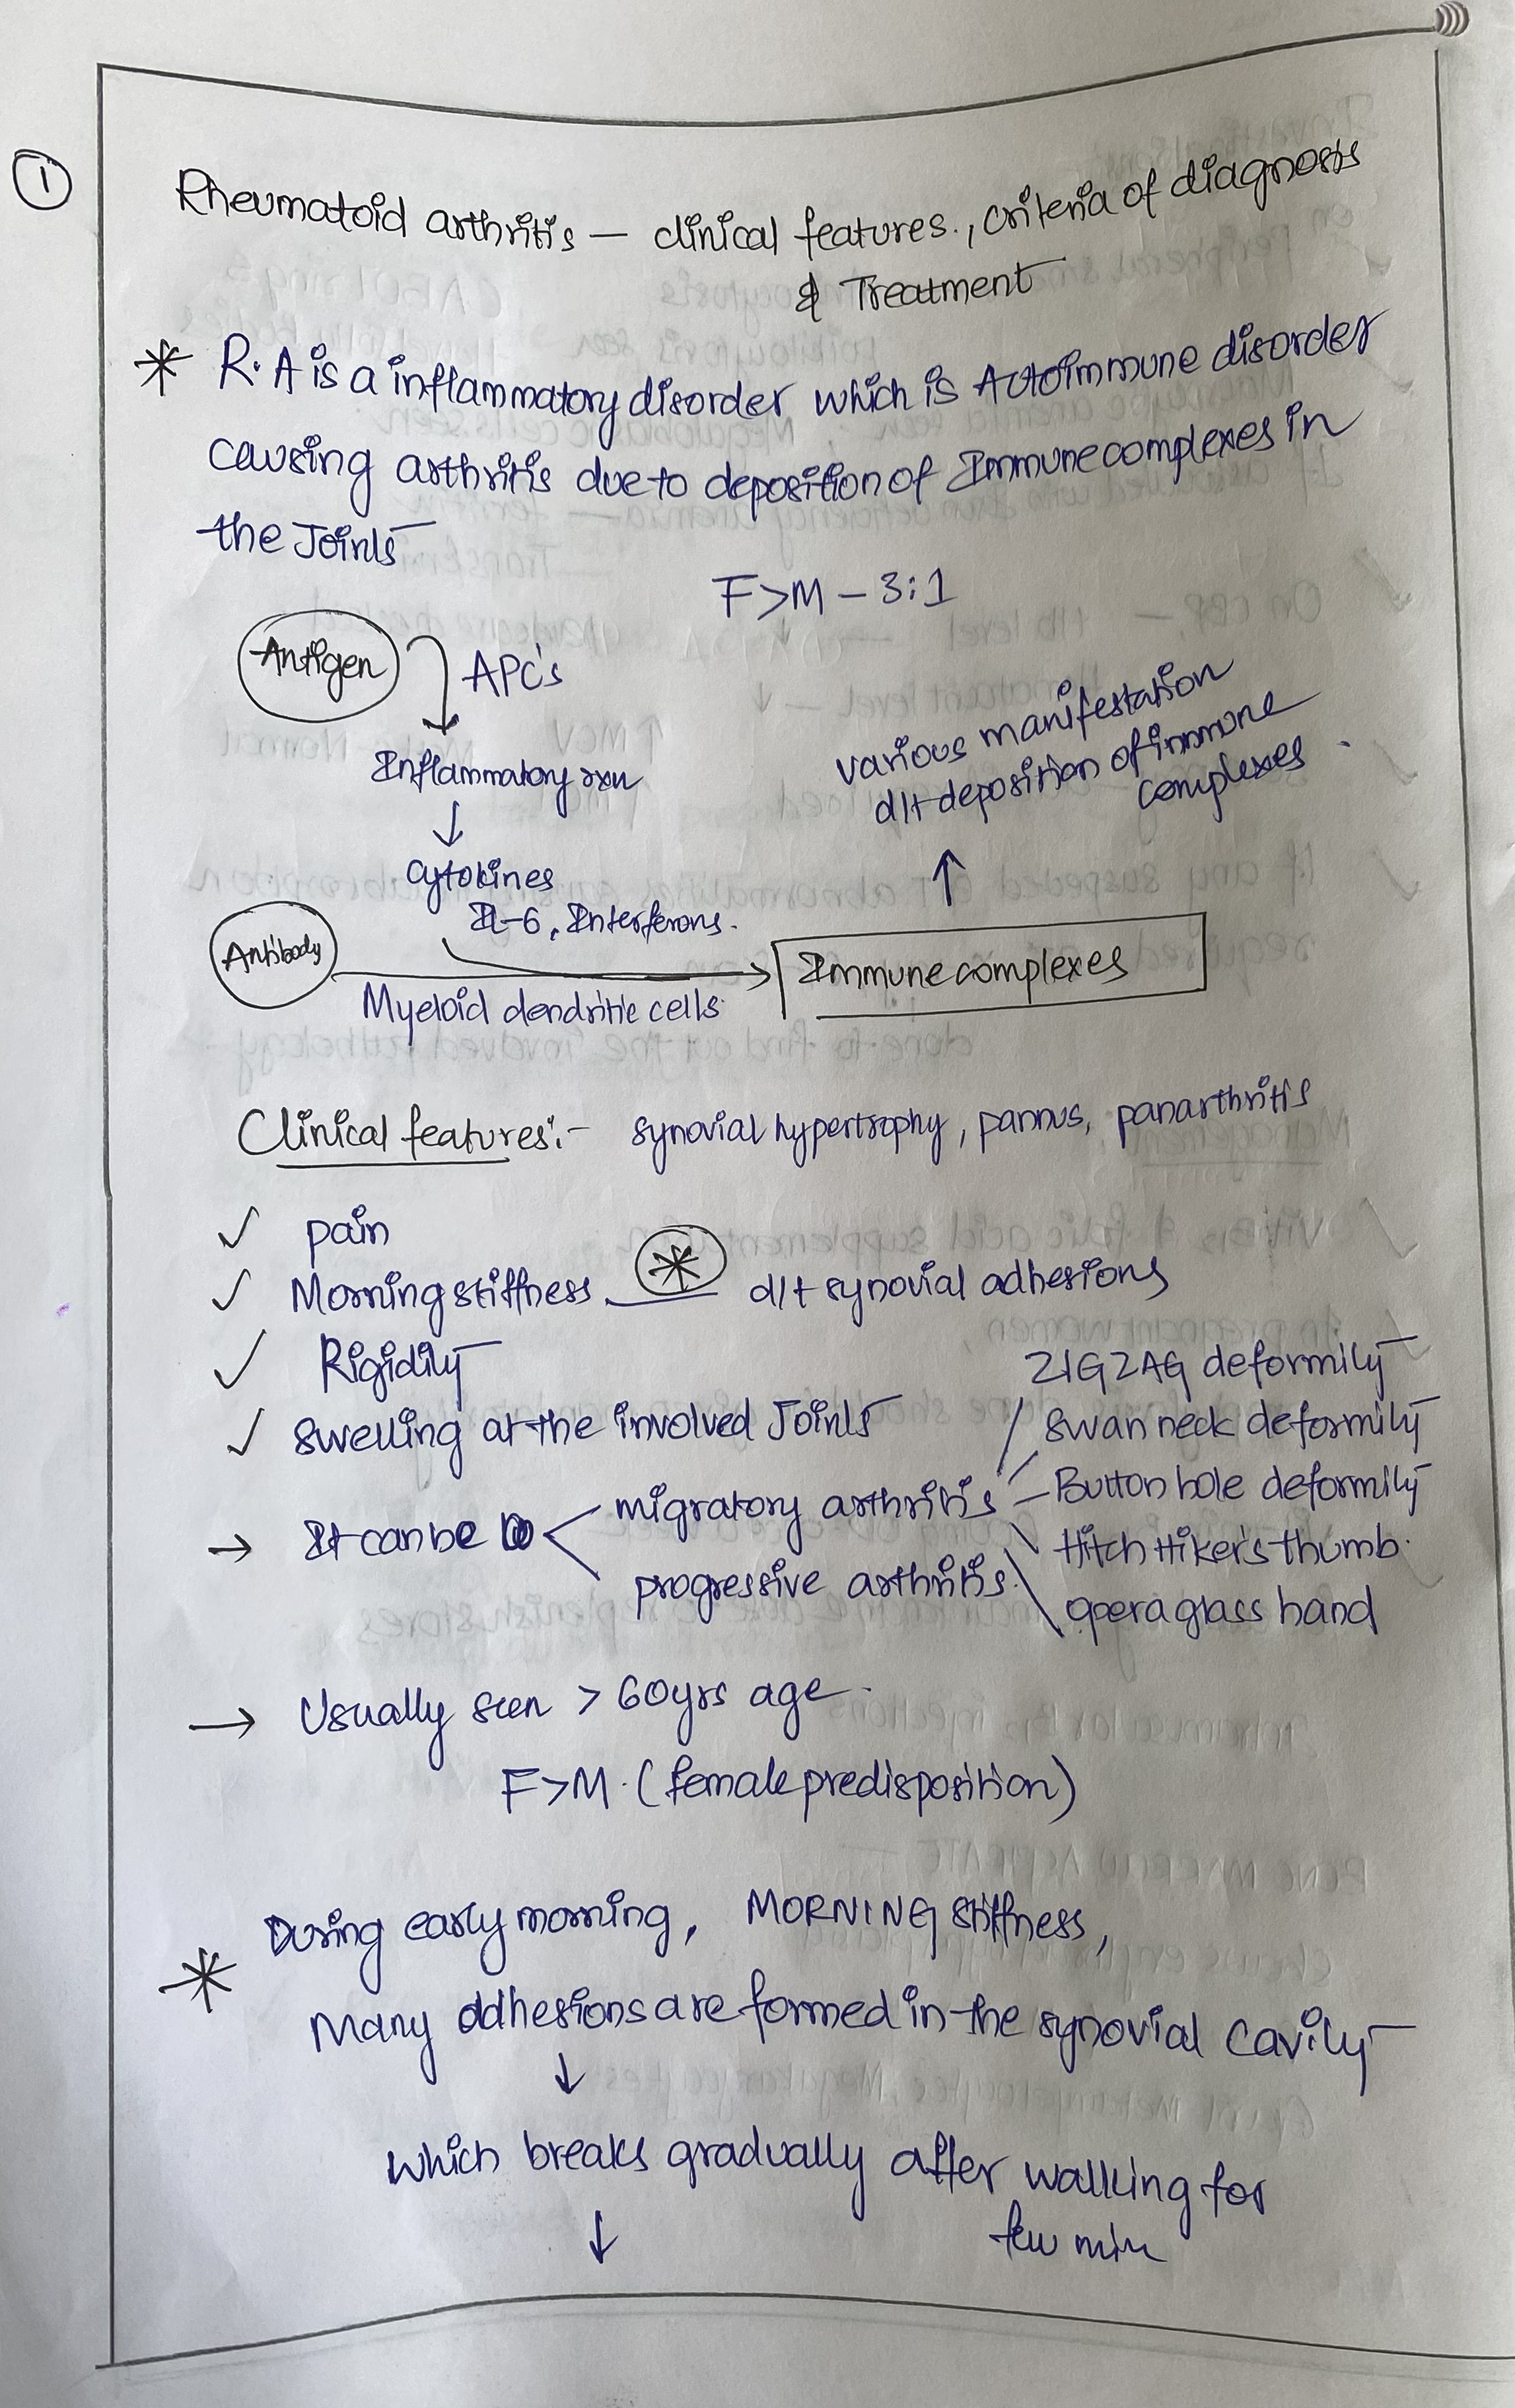 1
Rheumatoid arthritis — clinical features., criteria of diagnosis
& Treatment
* R.A is a inflammatory disorder which is Autoimmune disorder
causing arthritis due to deposition of Immune complexes in
the Joints
F>M – 3:1
Antigen
APC's
Inflammatory rxn
↓
cytokines
IL-6, Interferons.
Antibody
Myeloid dendritic cells
Immune complexes
↑
various manifestation
d/t deposition of immune
complexes.
Clinical features:- synovial hypertrophy, pannus, panarthritis
✓ pain
✓ Morning stiffness * d/t synovial adhesions
✓ Rigidity
✓ swelling at the involved Joints
→ It can be < migratory arthritis
progressive arthritis.
ZIGZAG deformity
swan neck deformity
Button hole deformity
Hitch Hiker's thumb.
opera glass hand
→ Usually seen > 60yrs age.
F>M. (female predisposition)
* During early morning, MORNING stiffness,
Many adhesions are formed in the synovial cavity
↓
which breaks gradually after walking for
few min
↓